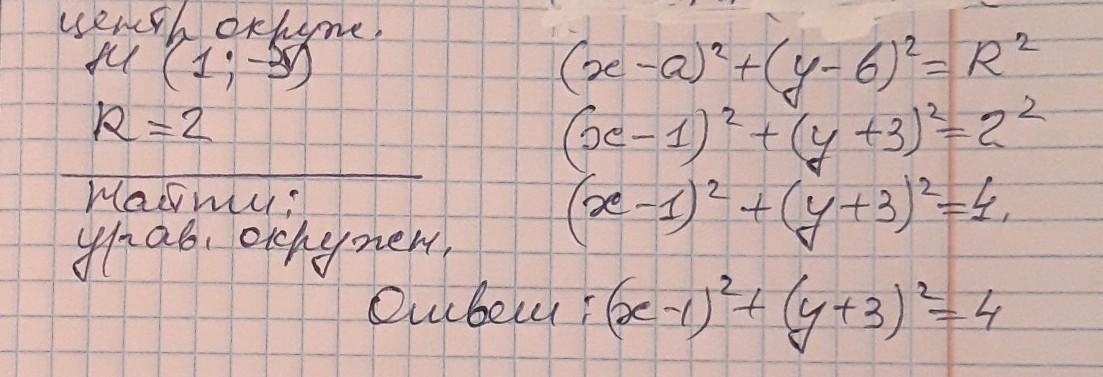 центр окруж.
М (1; -3)
R = 2
Найти:
урав. окружен.
(x - a)² + (y - b)² = R²
(x - 1)² + (y + 3)² = 2²
(x - 1)² + (y + 3)² = 4.
Ответ: (x - 1)² + (y + 3)² = 4